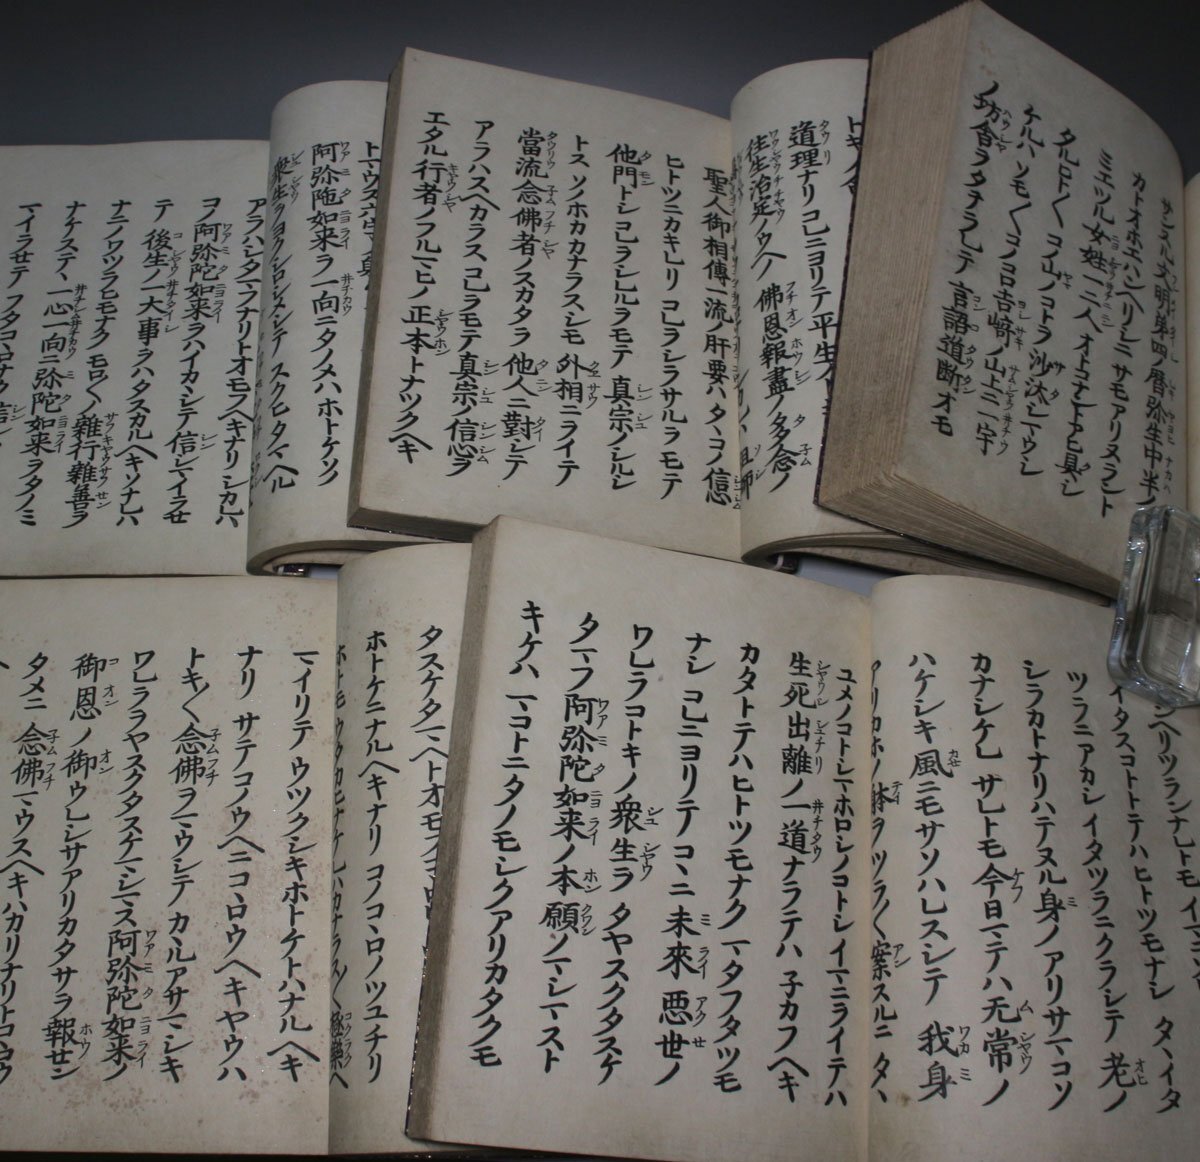 カトオホエハンヘリシニサモアリヌラントミエツル女姓一二人オトコナントアヒ具シ
タルヒト〱コノ山ノコトヲ沙汰シマウシ
ケルハソモ〱コノコロ吉﨑ノ山上ニ一宇
ノ坊舎ヲタテラレテ言語道断オモ
道理ナリコレニヨリテ平生
往生治定ノウヘノ佛恩報盡ノ多念ノ
聖人御相傳一流ノ肝要ハタヽコノ信心
ヒトツニカキレリコレヲシラサルヲモテ
他門トシコレヲシレルヲモテ真宗ノシルシ
トスソノホカカナラスシモ外相ニライテ
當流念佛者ノスカタヲ他人ニ對シテ
アラハスヘカラスコレヲモテ真宗ノ信心ヲ
エタル行者ノフルマヒノ正本トナツクヘキ
阿弥陁如来ヲ一向ニタノメハホトケソノ
衆生ヲヨクシロシメシテスクヒタマヘル
アラハシタマフナリトオモフヘキナリシカレハ
コノ阿弥陀如来ヲハイカヽシテ信シマイラセ
テ後生ノ一大事ヲハタスカルヘキソナレハ
ナニノワツラヒモナクモロ〱ノ雜行雜善ヲ
ナケステヽ一心一向ニ弥陀如来ヲタノミ
マイラセテフタコヽロナク信シ
イタスコトテハヒトツモナシタヽイタ
ツラニアカシイタツラニクラシテ老ノ
シラカトナリハテヌル身ノアリサマコソ
カナシケレサレトモ今日マテハ无常ノ
ハケシキ風ニモサソハレスシテ我身
アリカホノ躰ヲツラ〱案スルニタヽ
ユメノコトシマホロシノコトシイマニライテハ
生死出離ノ一道ナラテハ子カフヘキ
カタトテハヒトツモナクマタフタツモ
ナシコレニヨリテコヽニ未來惡世ノ
ワレラコトキノ衆生ヲタヤスクタスケ
タマフ阿弥陀如来ノ本願ノマシマスト
キケハマコトニタノモシクアリカタクモ
タスケタマヘトオモフ
ホトケニナルヘキナリコノコヽロノツユチリ
ホトモウタカヒナケレハカナラス〱極樂ヘ
マイリテウツクシキホトケトハナルヘキ
ナリサテコノウヘニコヽロウヘキヤウハ
トキ〱念佛ヲマウシテカヽルアサマシキ
ワレラヲヤスクタスケマシマス阿弥陀如来ノ
御恩ノ御ウレシサアリカタサヲ報セン
タメニ念佛マウスヘキハカリナリトコヽロウ